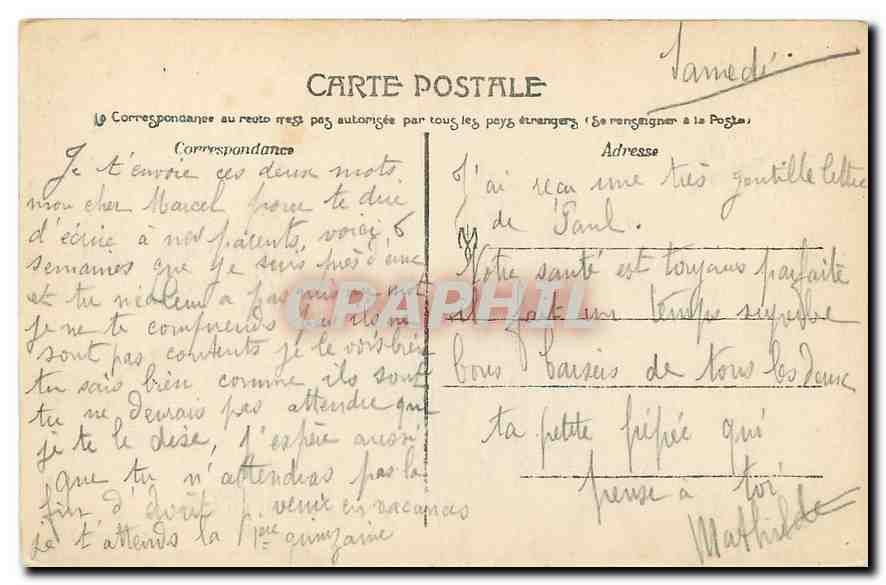 Samedi
CARTE POSTALE
La Correspondance au recto n'est pas autorisée par tous les pays étrangers (Se renseigner à la Poste)
Correspondance
Je t'envoie ces deux mots
mon cher Marcel pour te dire
d'écrire à nos parents, voici 6
semaines que je suis près d'eux
et tu n'as pas mis un mot
je ne te comprends pas ils ne
sont pas contents je le vois bien
tu sais bien comme ils sont
tu ne devrais pas attendre que
je te le dise, j'espère aussi
que tu n'attendras pas la
fin d'août p. venir en vacances
je t'attends la 1ère quinzaine
Adresse
J'ai reçu une très gentille lettre
de Paul.
Notre santé est toujours parfaite
il fait un temps superbe
bons baisers de tous les deux
ta petite fépée qui
pense à toi
Mathilde
CPAPHIL